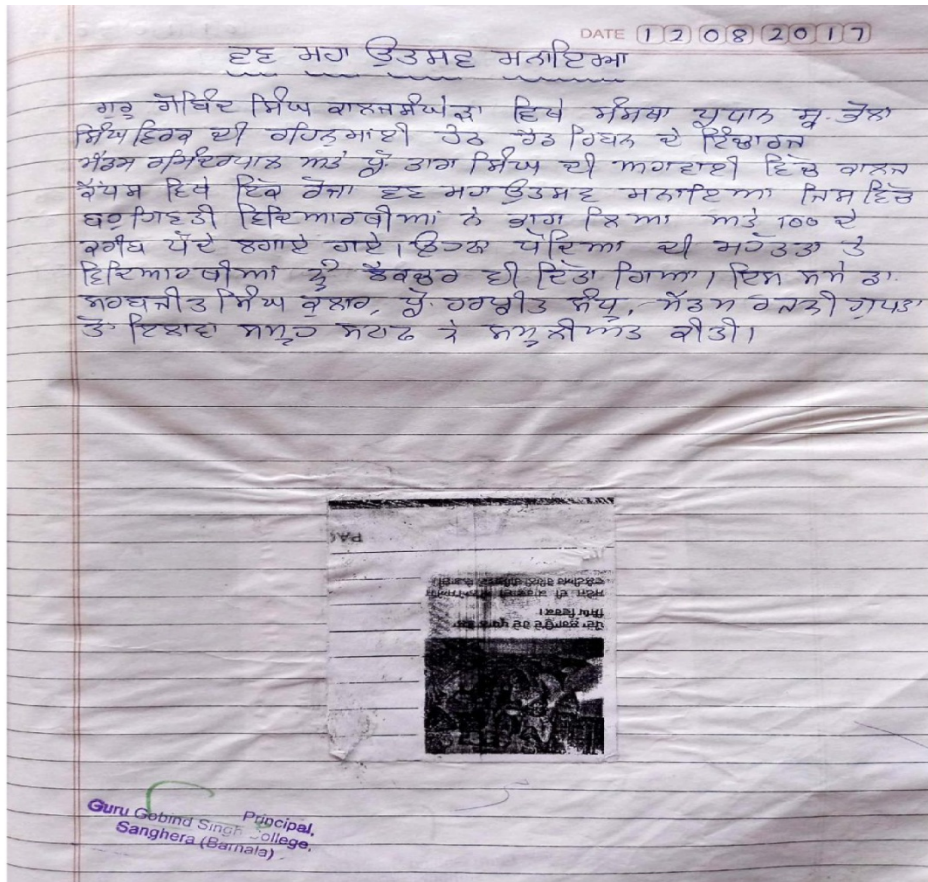 DATE 12082017
ਵਣ ਮਹਾ ਉਤਸਵ ਮਨਾਇਆ
ਗੁਰੂ ਗੋਬਿੰਦ ਸਿੰਘ ਕਾਲਜ ਸੰਘੇੜਾ ਵਿਖੇ ਸੰਸਥਾ ਪ੍ਰਧਾਨ ਸ੍ਰ. ਭੋਲਾ
ਸਿੰਘ ਵਿਰਕ ਦੀ ਰਹਿਨੁਮਾਈ ਹੇਠ ਰੈਡ ਰਿਬਨ ਦੇ ਇੰਚਾਰਜ
ਮੈਡਮ ਰਮਿੰਦਰਪਾਲ ਅਤੇ ਪ੍ਰੋ ਤਾਰਾ ਸਿੰਘ ਦੀ ਅਗਵਾਈ ਵਿੱਚ ਕਾਲਜ
ਕੈਂਪਸ ਵਿਖੇ ਇੱਕ ਰੋਜਾ ਵਣ ਮਹਾ ਉਤਸਵ ਮਨਾਇਆ ਜਿਸ ਵਿੱਚ
ਬਹੁ ਗਿਣਤੀ ਵਿਦਿਆਰਥੀਆਂ ਨੇ ਭਾਗ ਲਿਆ ਅਤੇ 100 ਦੇ
ਕਰੀਬ ਪੌਦੇ ਲਗਾਏ ਗਏ। ਉਹਨਾਂ ਪੌਦਿਆਂ ਦੀ ਮਹੱਤਤਾ ਤੇ
ਵਿਦਿਆਰਥੀਆਂ ਨੂੰ ਲੈਕਚਰ ਵੀ ਦਿੱਤਾ ਗਿਆ। ਇਸ ਸਮੇਂ ਡਾ.
ਸਰਬਜੀਤ ਸਿੰਘ ਕੁਲਾਰ, ਪ੍ਰੋ ਹਰਪ੍ਰੀਤ ਸੰਧੂ, ਮੈਡਮ ਰਜਨੀ ਗੁਪਤਾ
ਤੋਂ ਇਲਾਵਾ ਸਮੂਹ ਸਟਾਫ ਨੇ ਸਮੂਲੀਅਤ ਕੀਤੀ।
Principal,
Guru Gobind Singh College,
Sanghera (Barnala)